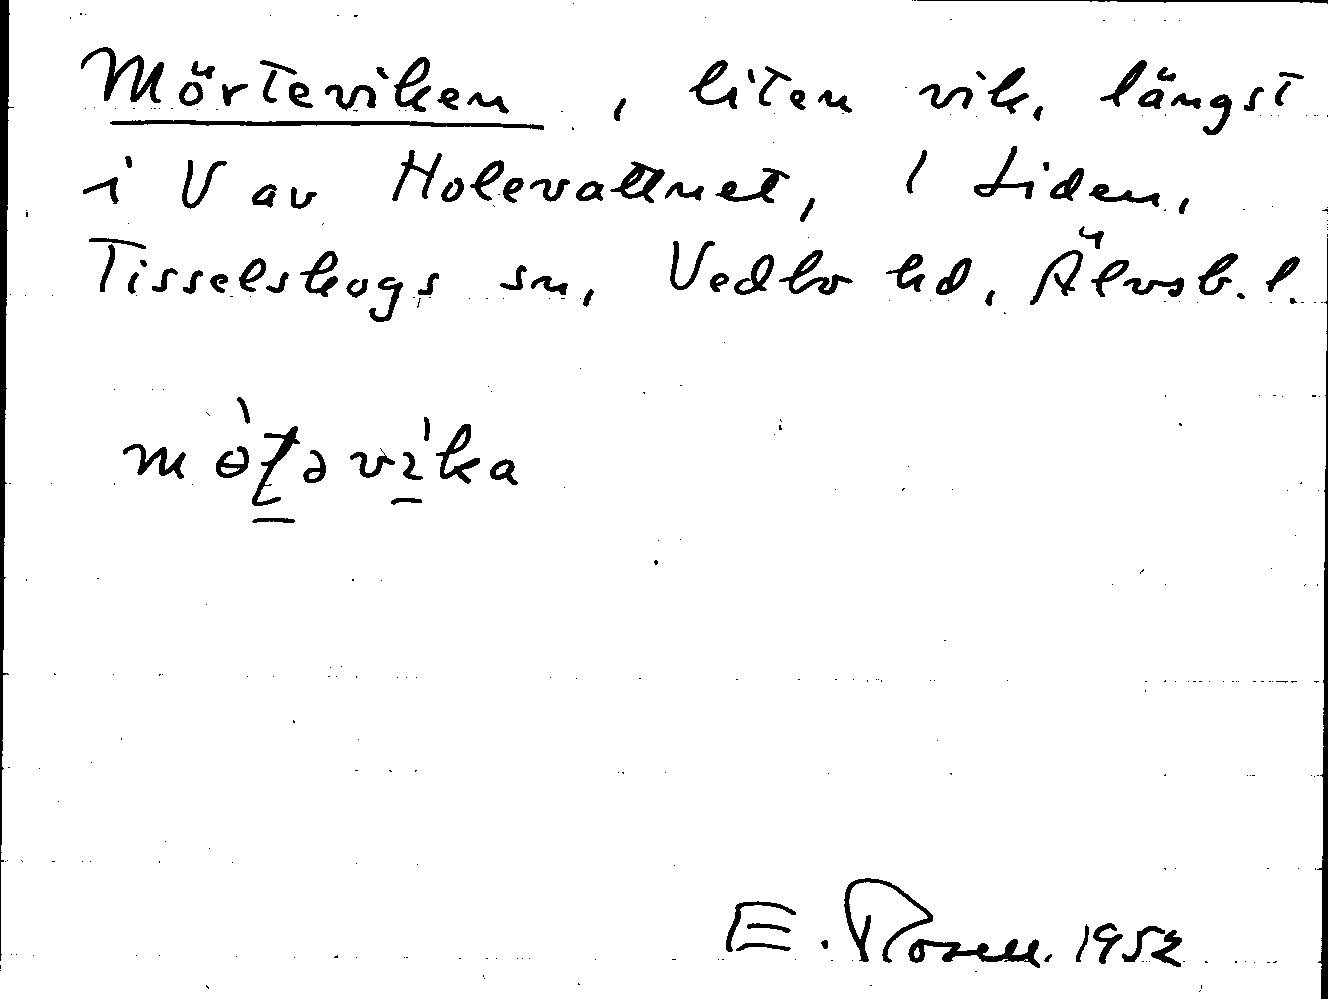 Mörteviken, liten vik, längst
i V av Holevattnet, 1 Liden,
Tisselskogs sn, Vedbo hd, Älvsb. l.
E. Rosell. 1952